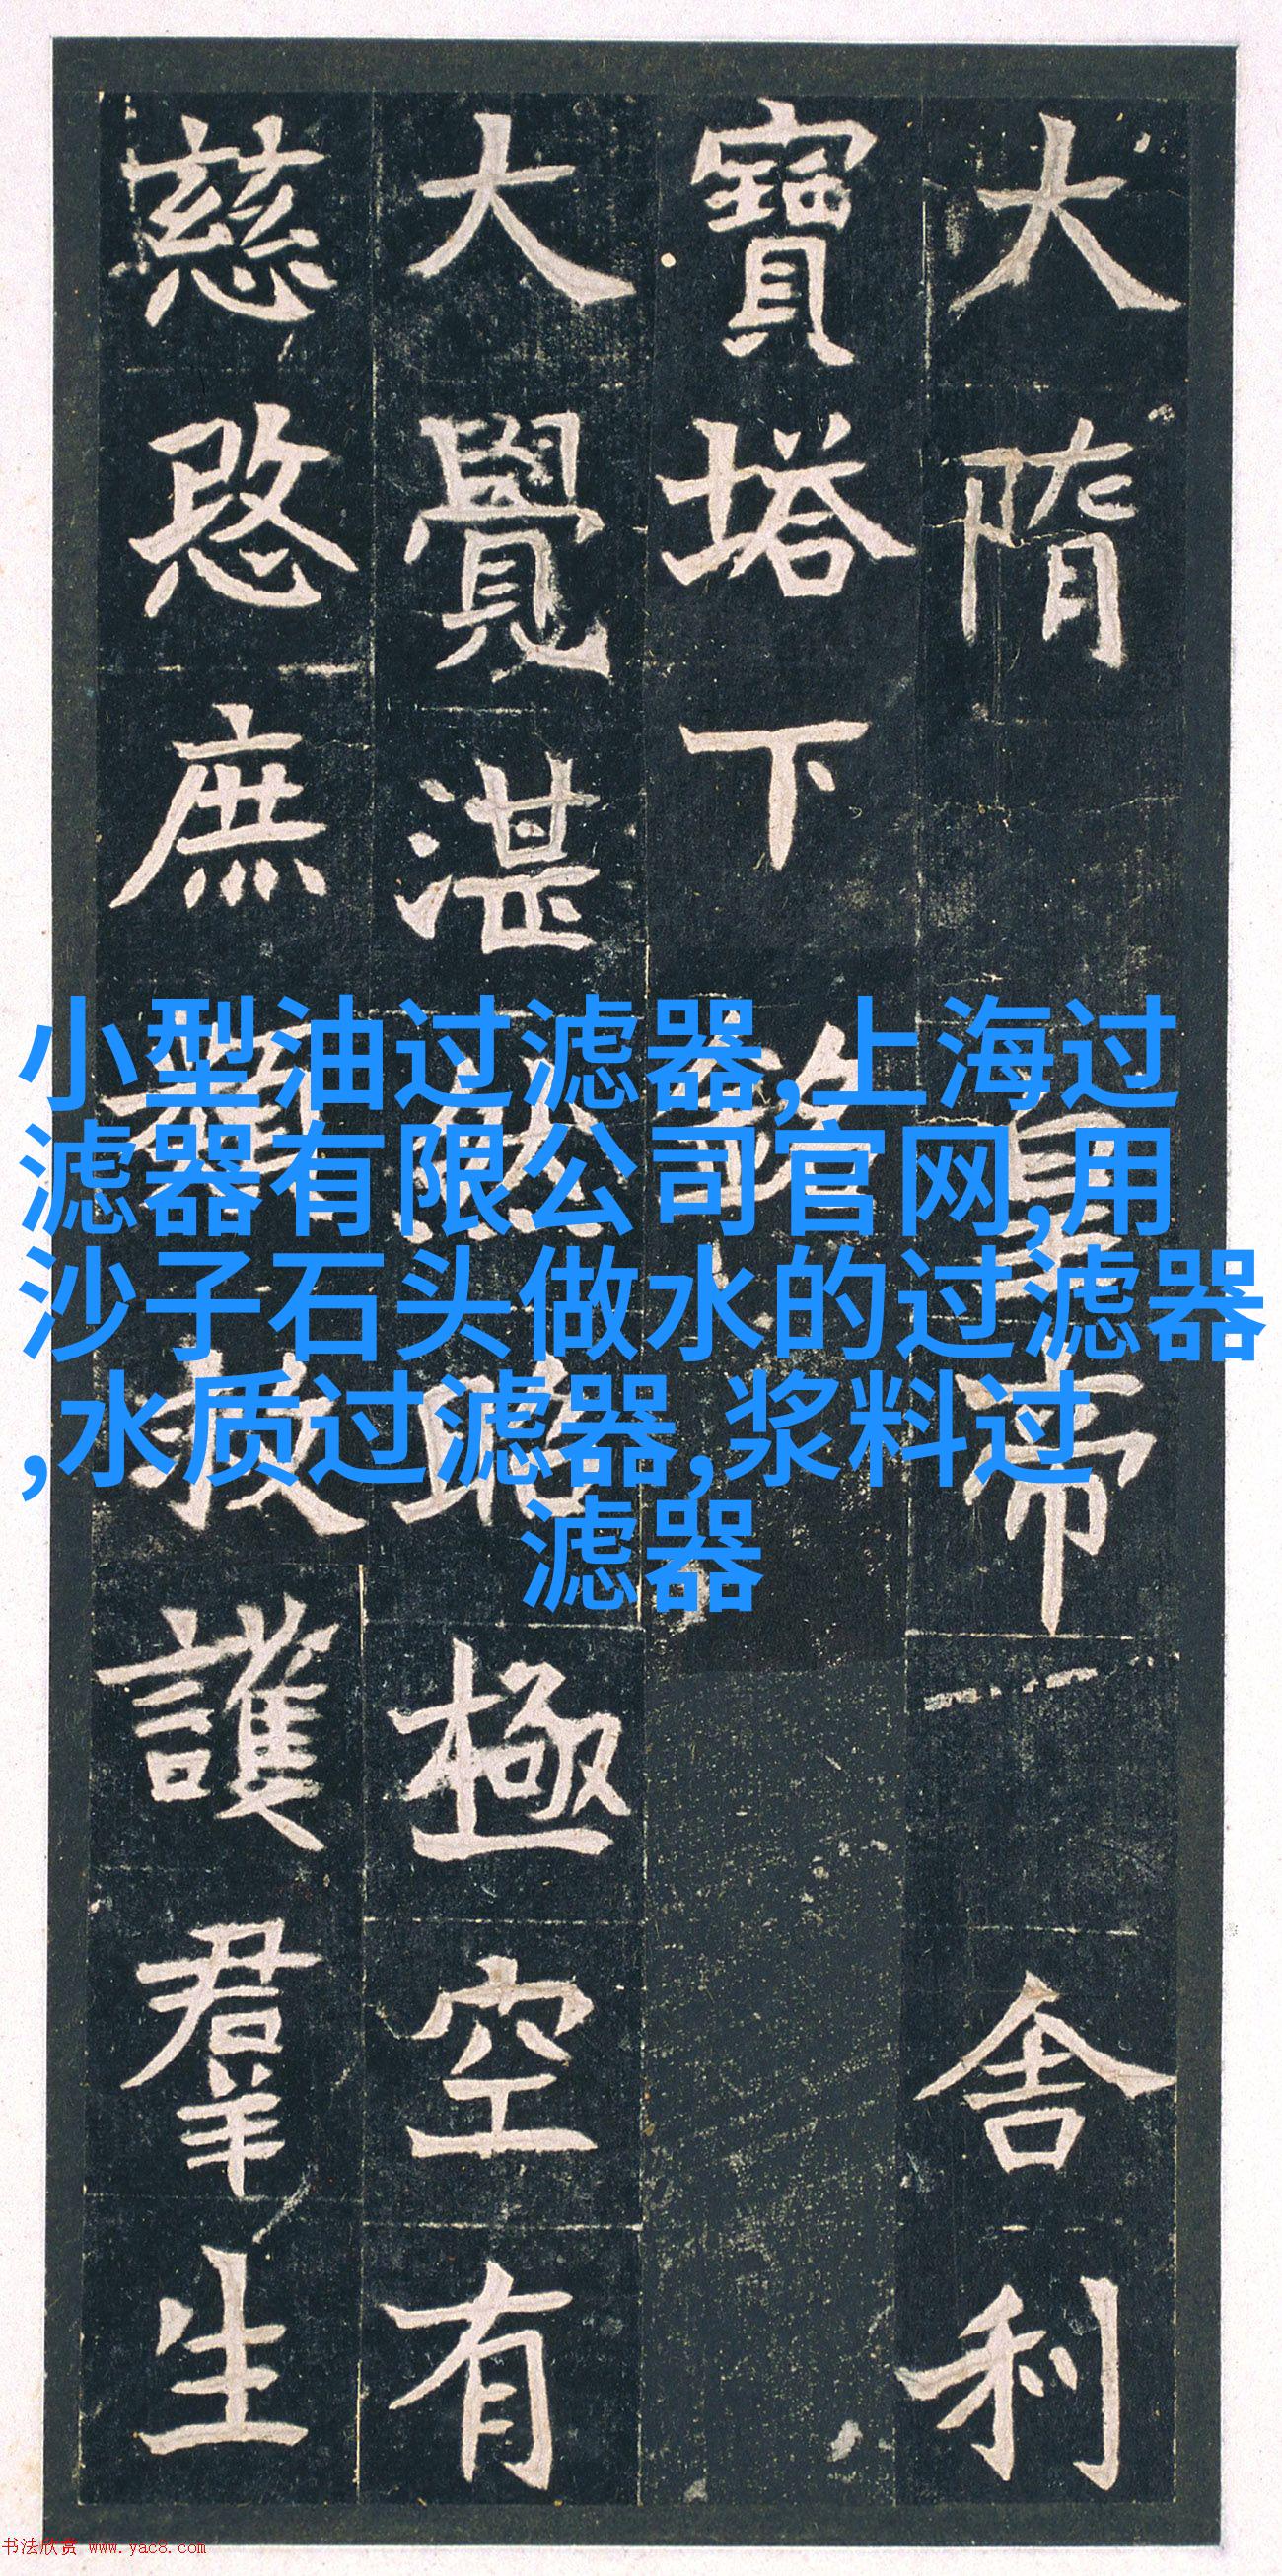 大隋皇帝舍利
寶塔下銘
大覺湛然昭極空有
慈愍庶類救護羣生
小型油过滤器,上海过
滤器有限公司官网,用
沙子石头做水的过滤器
,水质过滤器,浆料过
滤器
书法欣赏 www.yac8.com